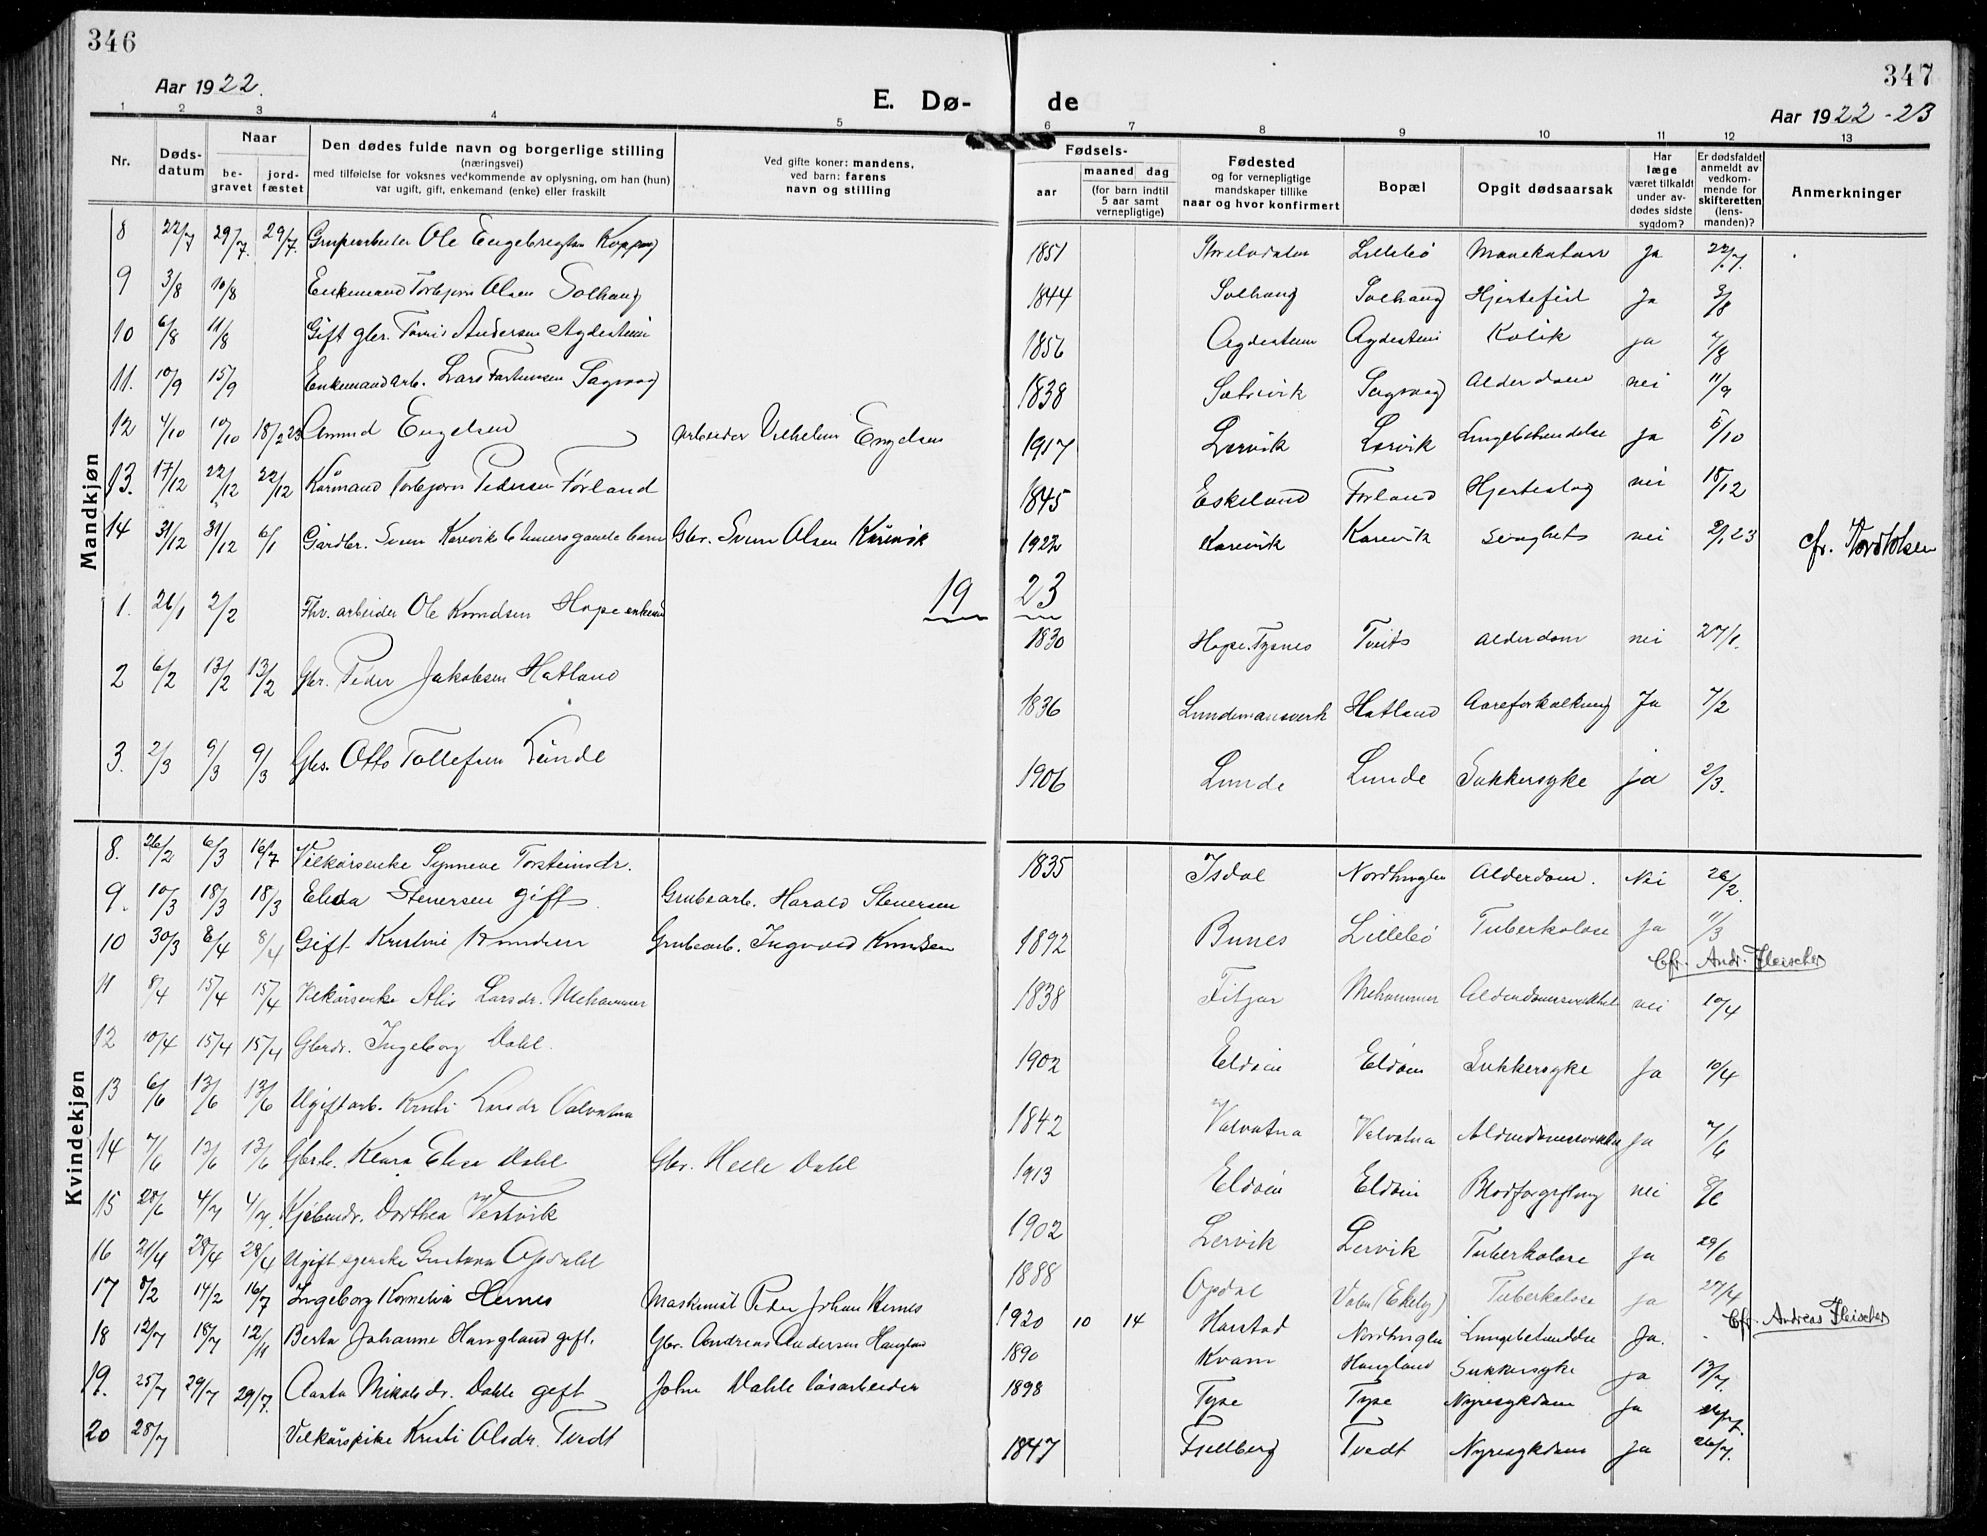 346
Aar 1922.
E. Dø-
1 2 3 4 5
Nr.
Døds-
datum
Naar
be-
gravet
jord-
fæstet
Den dødes fulde navn og borgerlige stilling
(næringsvei)
med tilføielse for voksnes vedkommende av oplysning, om han (hun)
var ugift, gift, enkemand (enke) eller fraskilt
Ved gifte koner: mandens,
ved barn: farens
navn og stilling
Mandkjøn
8 22/7 29/7. 29/7. Ole
9 3/8 10/8 Enkemand Torbjørn Olsen Solhaug
10 6/8 11/8 Gift gbr. Tønnis Andersen Agdestein
11. 10/9 15/9 Enkemand arb. Lars Sagvaag
12 4/10 10/10 18/2 23 Amund Engelsen Arbeider Vilhelm Engelsen
13. 17/12 22/12 22/12 Kårmand Torbjørn Pedersen Førland
14 31/12 31/12 6/1 Gårdbr. Sven Gbr. Sven Olsen Kårevik
1923
1. 26/1 2/2 Fhv. arbeider Ole Knudsen Hope enkem
2 6/2 13/2 13/2 Gbr. Peder Jakobsen Hatland
3. 2/3 9/3 9/3 Gbs. Otto Tollefsen Lunde
Kvindekjøn
8. 26/2 6/3 16/7 Vilkårsenke Synneve Torsteinsdr.
9. 10/3 18/3 18/3 Elida Stenersen gift Grubearb. Harald Stenersen
10 30/3 8/4 8/4 Gift Kristine Knudsen Grubearb. Ingvald Knudsen
11 8/4 15/4 15/4 Vilkårsenke Alis Larsdr. Mehammer
12 10/4 15/4 15/4 Gbrdr. Ingeborg Dahl.
13 6/6 13/6 13/6 Ugift arb. Kristi Larsdr Valvatna
14 7/6 13/6 13/6 Klara Elisa Dahl Gbr. Helle Dahl
15 28/6 4/7 4/7. Dorthea Vestvik
16 21/4 28/4 28/4 Ugift Gustava Opdahl
17 8/2 14/2 16/7 Ingeborg Kornelia Hernes Maskinist Peder Johan Hernes
18 12/7 18/7 12/11 Berta Johanne Haugland gift. Gbr. Andreas Andersen Haugland
19. 25/7 29/7 29/7. Aasta Nikolsdr. Dahle gift John Dahle løsarbeider
20 28/7 Vilkårspike Kristi Olsdr. Tvedt
347
de
Aar 1922-23
6 7 8 9 10 11 12 13
Fødsels-
aar
maaned dag
(for barn indtil
5 aar samt
vernepligtige)
Fødested
og for vernepligtige
mandskaper tillike
naar og hvor konfirmert
Bopæl
Opgit dødsaarsak
Har
læge
været tilkaldt
under av-
dødes sidste
sygdom?
Er dødsfaldet
anmeldt av
vedkom-
mende for
skifteretten
(lens-
manden)?
Anmerkninger
1851 Storelvdalen Lillebø Mavekatarr Ja 22/7.
1844 Solhaug Solhaug Hjertefeil Ja 3/8
1856 Agdestein Agdestein Kolik ja 7/8
1838 Sætrevik Sagvaag Alderdom nei 11/9
1917 Lervik Lervik Lungebetændelse ja 5/10
1845 Eskeland Førland Hjerteslag nei 18/12
1922 Kårevik Kårevik Svaghet nei 2/1 23 cfr.
1830 Hope. Tysnes Tveita Alderdom nei 27/1.
1836 Lundemansverk Hatland Aareforkalkning Ja 7/2
1906 Lunde Lunde Sukkersyke ja 2/3.
1835 Isdal Nordhuglen Alderdom. Nei 26/2
1892 Bunes Lillebø Tuberkolose ja 11/3
Cfr. Andr. Fleischer
1838 Fitjar Mehammer Alderdomssvakhet nei 10/4
1902 Eldøen Eldøen Sukkersyke Ja 10/4
1842 Valvatna Valvatna Alderdomssvakhet ja 7/6
1913 Eldøen Eldøen Blodforgiftning nei 8/6
1902 Lervik Lervik Tuberkolose ja 29/6
1888 Opdal Valen (Ekely) Tuberkolose ja 27/4
1920 10 14 Harstad Nordhuglen Lungebetændelse Ja. - Cfr. Andreas Fleischer
1890 Kvam Haugland Sukkersyke ja 13/7.
1898 Tyse Tyse Nyresykdom Ja 26/7.
1847 Fjelberg Tvedt Nyresykdom ja 26/7.